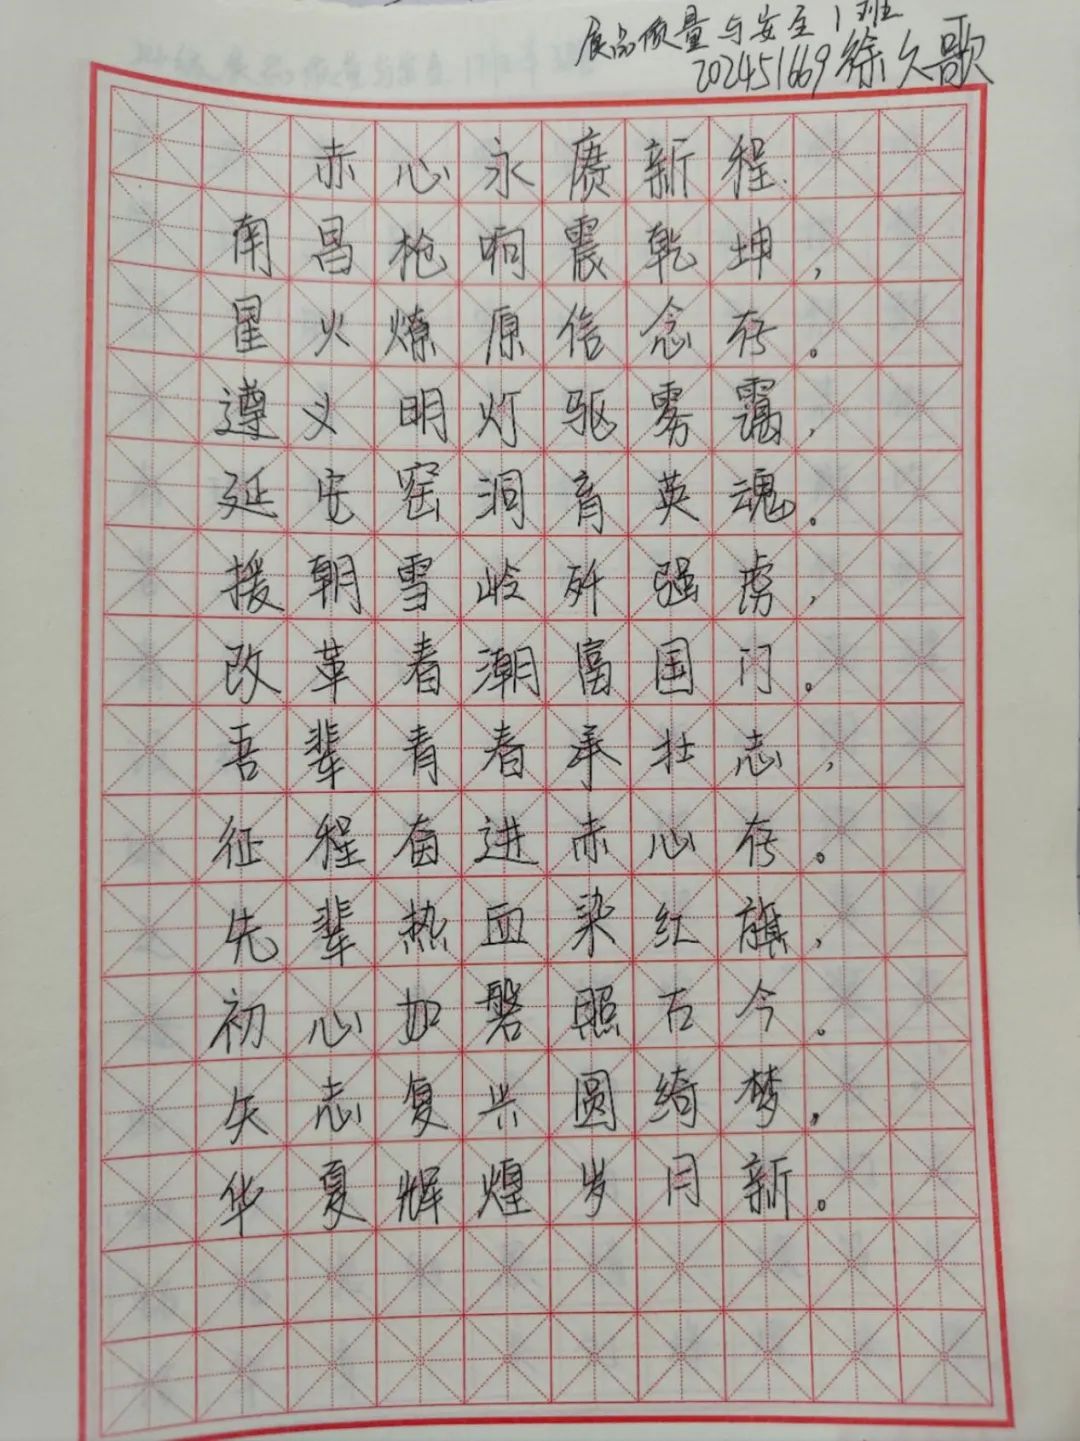 食品质量与安全1班
202451669徐久歌
赤心永赓新程
南昌枪响震乾坤，
星火燎原信念存。
遵义明灯驱雾霭，
延安窑洞育英魂。
援朝雪岭歼强虏，
改革春潮富国门。
吾辈青春承壮志，
征程奋进赤心存。
先辈热血染红旗，
初心如磐照古今。
矢志复兴圆绮梦，
华夏辉煌岁月新。